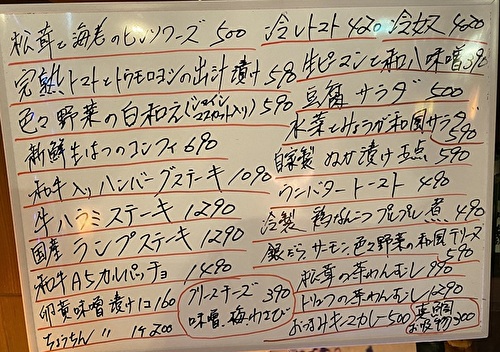 松茸と海老のピンツァーズ 500
完熟トマトとトウモロコシの出汁漬け 590
色々野菜の白和え(シャインマスカット入り) 590
新鮮生はつのコンフィ 690
和牛入りハンバーグステーキ 1090
牛ハラミステーキ 1290
国産ランプステーキ 1290
和牛A5カルパッチョ 1490
卵黄味噌漬け 1コ 160
ちょうちん 〃 1ケ 200
冷しトマト 420 冷奴 420
生ピーマンと和八味噌 390
豆腐サラダ 500
水菜とみょうが和風サラダ 590
自家製ぬか漬け五点 590
ウニバタートースト 490
冷製 鶏なんこつプルプル煮 490
銀だら、サーモン、色々野菜の和風テリーヌ 590
松茸の茶わんむし 990
トリュフの茶わんむし 1290
おつまみキーマカレー 500
クリームチーズ 390
味噌、梅、わさび
真鯛お吸物 300